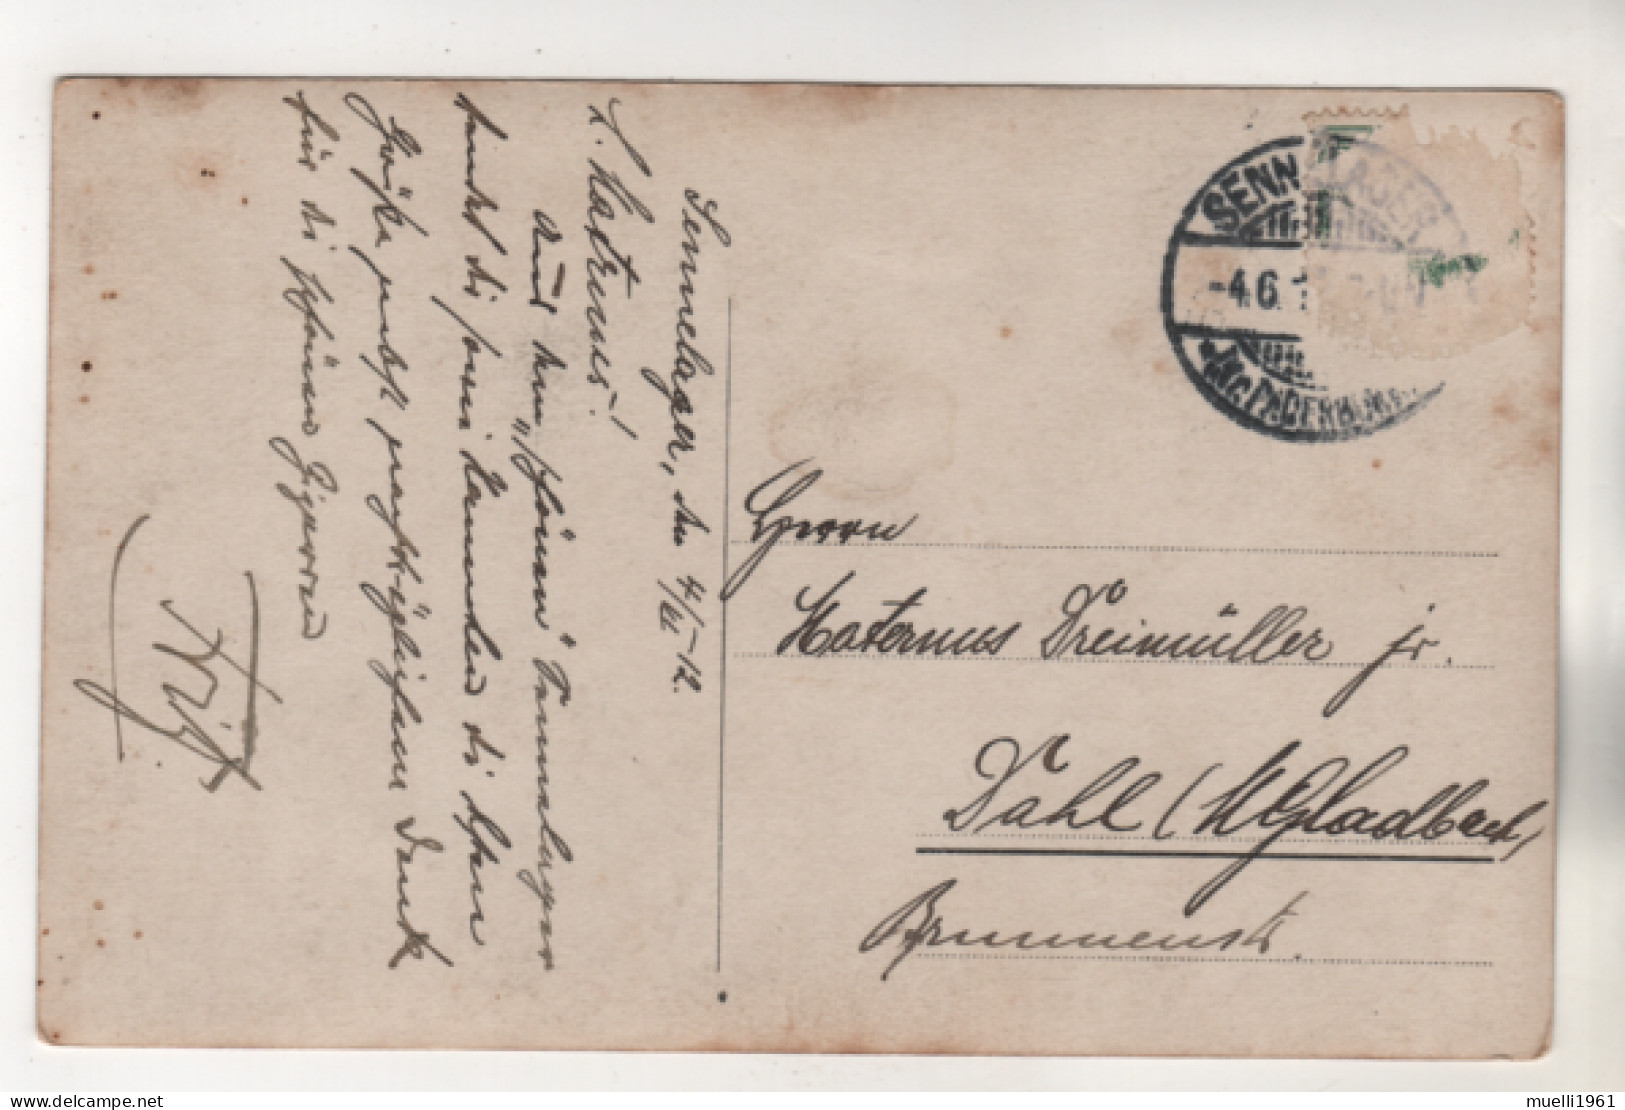 Sennelager, den 4/VI-12.
L. Maternus!
Aus dem "schönen" Sennelager
sendet dir sowie Kamerden die besten
Grüße nebst nachträglichem Dank
für die schönen Zigarren
Fritz
SENNELAGER
-4.6.1
(KR. PADERBORN)
Herrn
Maternus Dreimüller jr.
Dahl (M Gladbach)
Brunnenstr.
delcampe.net
muelli1961